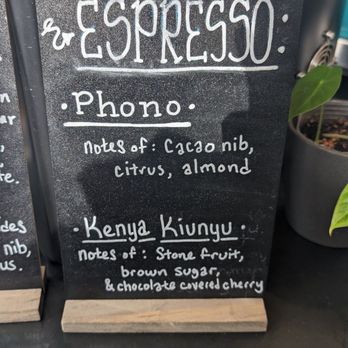 & ESPRESSO:
· Phono ·
notes of: Cacao nib,
citrus, almond
· Kenya Kiunyu ·
notes of: Stone fruit,
brown sugar,
& chocolate covered cherry
te.
des
nib,
us.